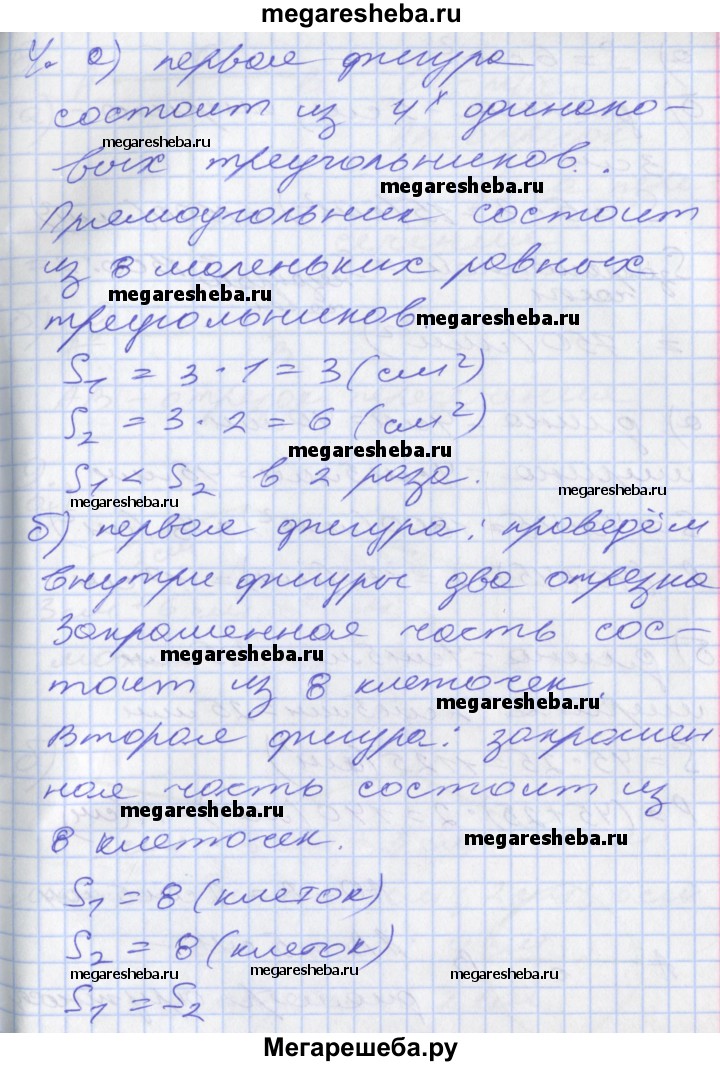 megaresheba.ru
4. а) первая фигура
состоит из 4х одинако-
megaresheba.ru
вых треугольников.
megaresheba.ru
Прямоугольник состоит
из 8 маленьких равных
megaresheba.ru
треугольников.
megaresheba.ru
S1 = 3 · 1 = 3 (см²)
S2 = 3 · 2 = 6 (см²)
megaresheba.ru
S1 < S2 в 2 раза.
megaresheba.ru
megaresheba.ru
б) первая фигура: проведём
внутри фигуры два отрезка
Закрашенная часть сос-
megaresheba.ru
тоит из 8 клеточек.
megaresheba.ru
Вторая фигура: закрашен
ная часть состоит из
megaresheba.ru
8 клеточек.
megaresheba.ru
S1 = 8 (клеток)
S2 = 8 (клеток)
megaresheba.ru
megaresheba.ru
megaresheba.ru
S1 = S2
Мегарешеба.ру